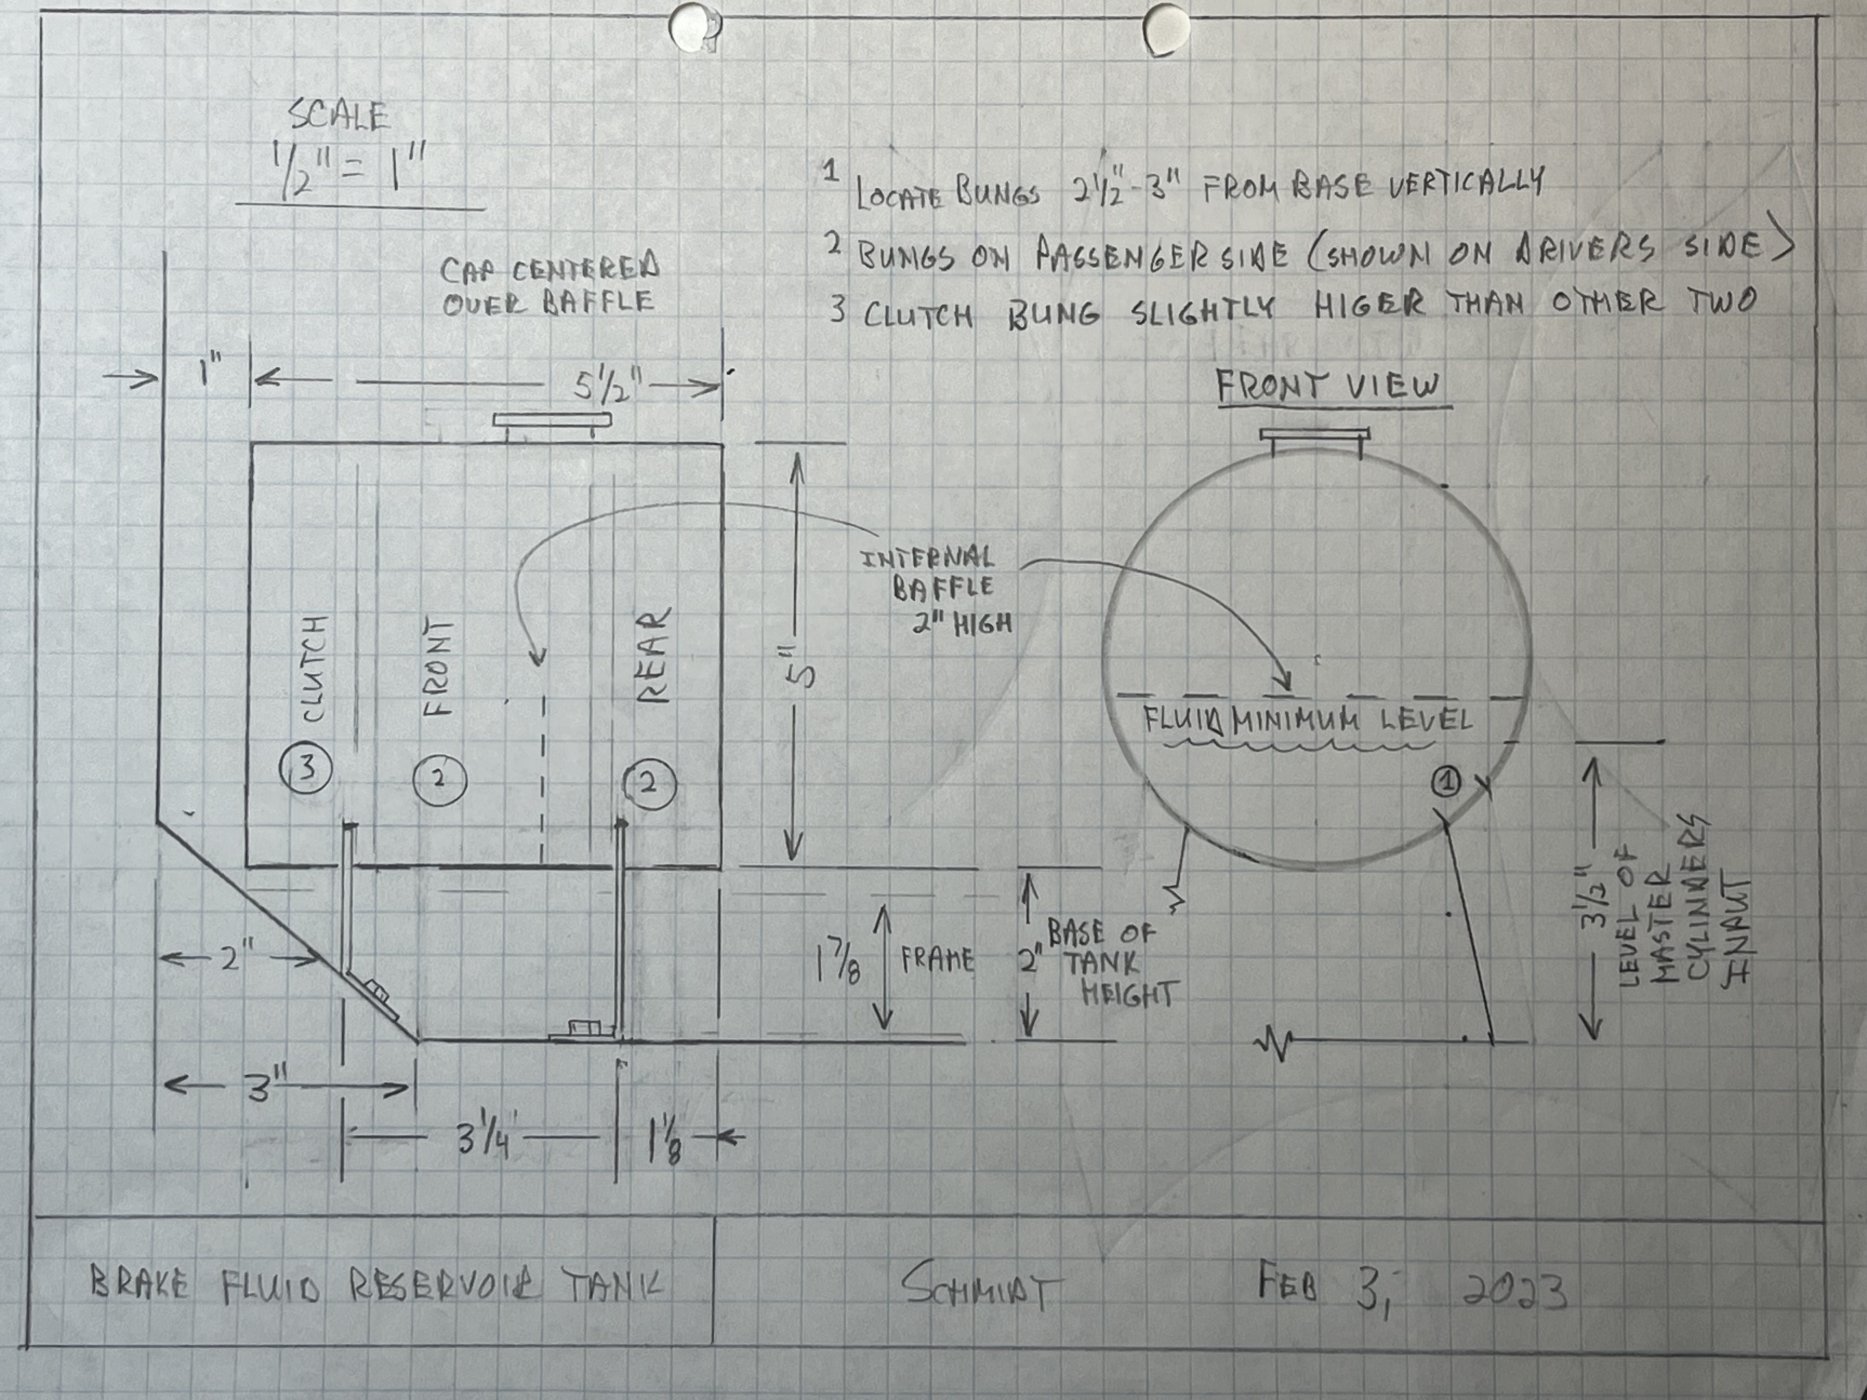 SCALE
1/2" = 1"
1 LOCATE BUNGS 2 1/2"-3" FROM BASE VERTICALLY
2 BUNGS ON PASSENGER SIDE (SHOWN ON DRIVERS SIDE)
3 CLUTCH BUNG SLIGHTLY HIGER THAN OTHER TWO
CAP CENTERED
OVER BAFFLE
1"
5 1/2"
FRONT VIEW
INTERNAL
BAFFLE
2" HIGH
CLUTCH
FRONT
REAR
5"
3
2
2
FLUID MINIMUM LEVEL
1
2"
1 7/8
FRAME
2"
BASE OF
TANK
HEIGHT
3 1/2"
LEVEL OF
MASTER
CYLINDERS
INPUT
3"
3 1/4"
1 1/8
BRAKE FLUID RESERVOIR TANK
SCHMIDT
FEB 3, 2023